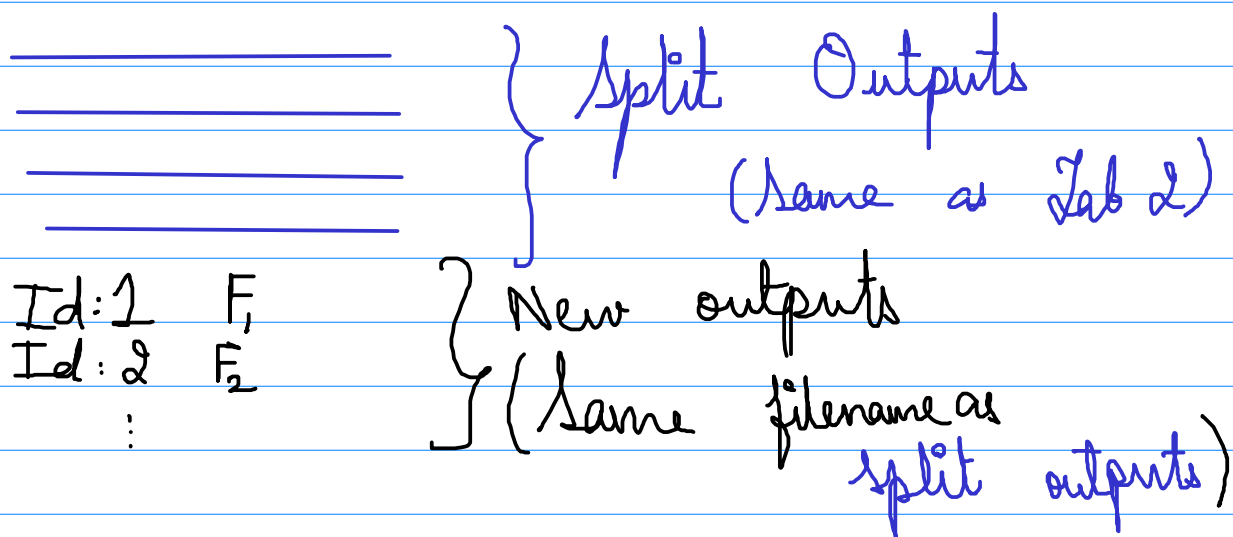 Split Outputs
(Same as Lab 2)
Id: 1 F₁
Id: 2 F₂
⋮
New outputs
(Same filename as
split outputs)